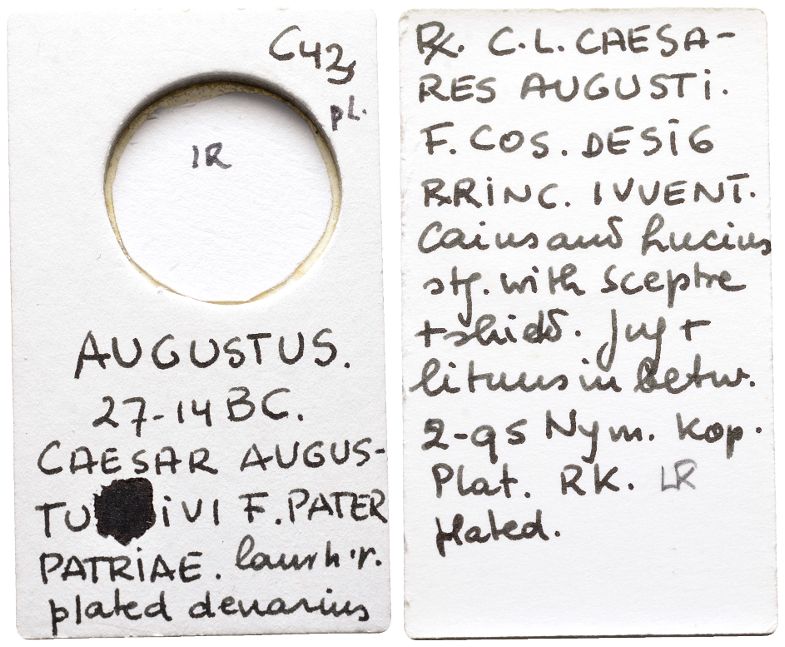 C43
pl.
IR
AUGUSTUS.
27-14 BC.
CAESAR AUGUS-
TU IVI F. PATER
PATRIAE. laur h.r.
plated denarius
R. C.L. CAESA-
RES AUGUSTI.
F. COS. DESIG
PRINC. IVVENT.
Caius and Lucius
stg. with sceptre
+ shield. Jug +
lituus in betw.
2-95 Nym. Kop.
Plat. RK. LR
plated.